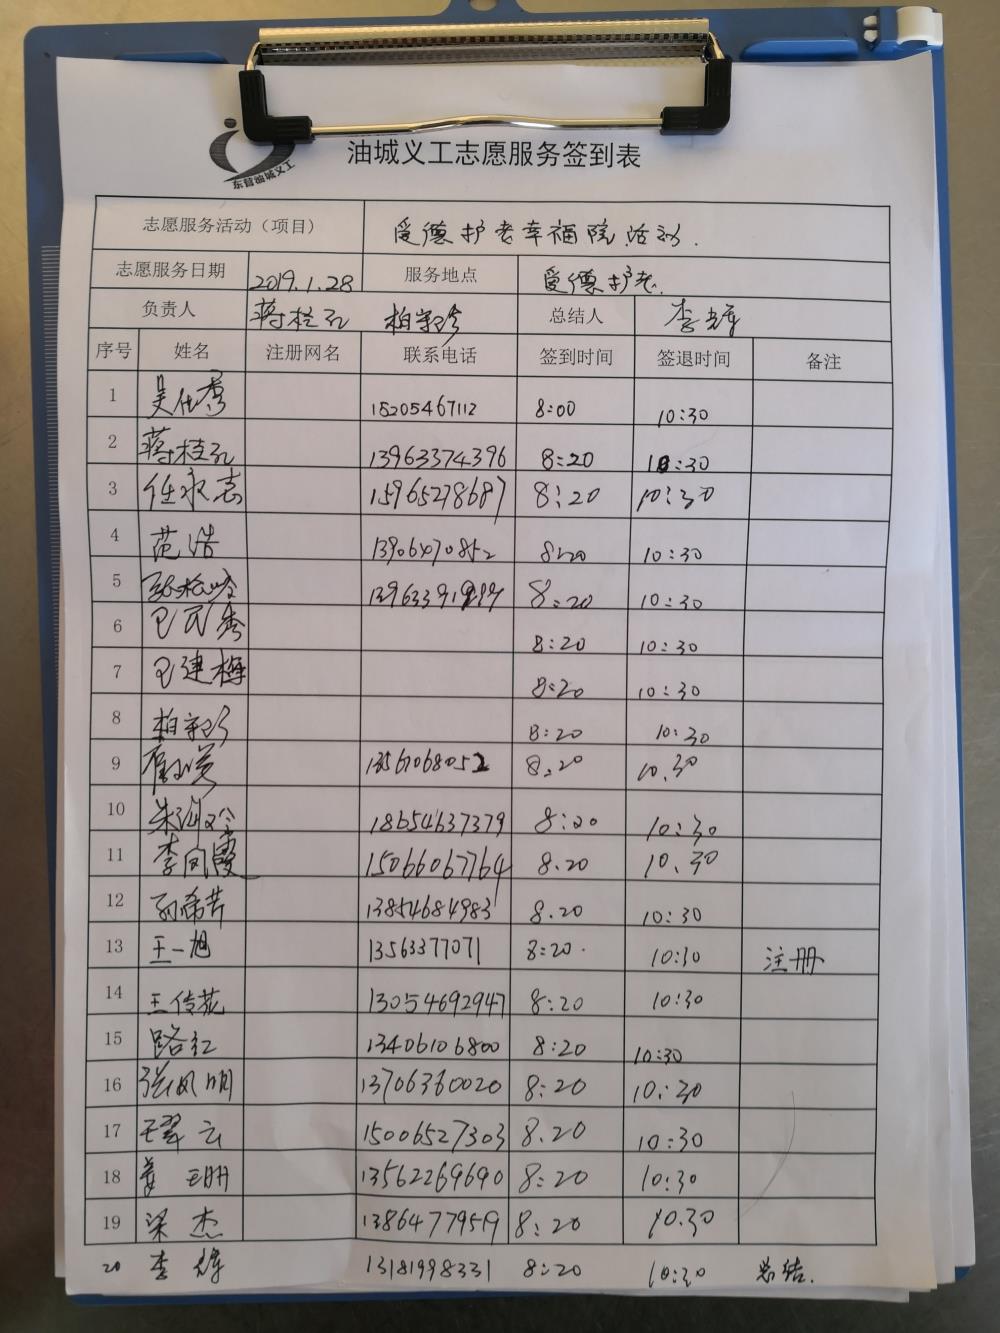 油城义工志愿服务签到表
东营油城义工
志愿服务活动（项目） 爱德护老幸福院活动.
志愿服务日期 2019.1.28 服务地点 爱德护老.
负责人 蒋桂孔 柏宇珍 总结人 李辉
序号 姓名 注册网名 联系电话 签到时间 签退时间 备注
1 吴仕秀 15205467112 8:00 10:30
2 蒋桂孔 13963374396 8:20 10:30
3 任永志 15965278687 8:20 10:30
4 范浩 13906470852 8:20 10:30
5 8:20 10:30
6 8:20 10:30
7 8:20 10:30
8 柏宇珍 8:20 10:30
9 13561068052 8.20 10.30
10 18654637379 8:20 10:30
11 李凤霞 15066067764 8.20 10.30
12 孙希芹 13854684983 8.20 10:30
13 王一旭 13563377071 8:20. 10:30 注册
14 王传花 13054692947 8:20 10:30
15 路红 13406106800 8:20 10:30
16 张凤明 13706360020 8:20 10:30
17 王翠云 15006527303 8.20 10:30
18 姜珊 13562269690 8:20 10:30
19 梁杰 13864779519 8:20 10.30
20 李辉 13181998331 8:20 10:30 总结.